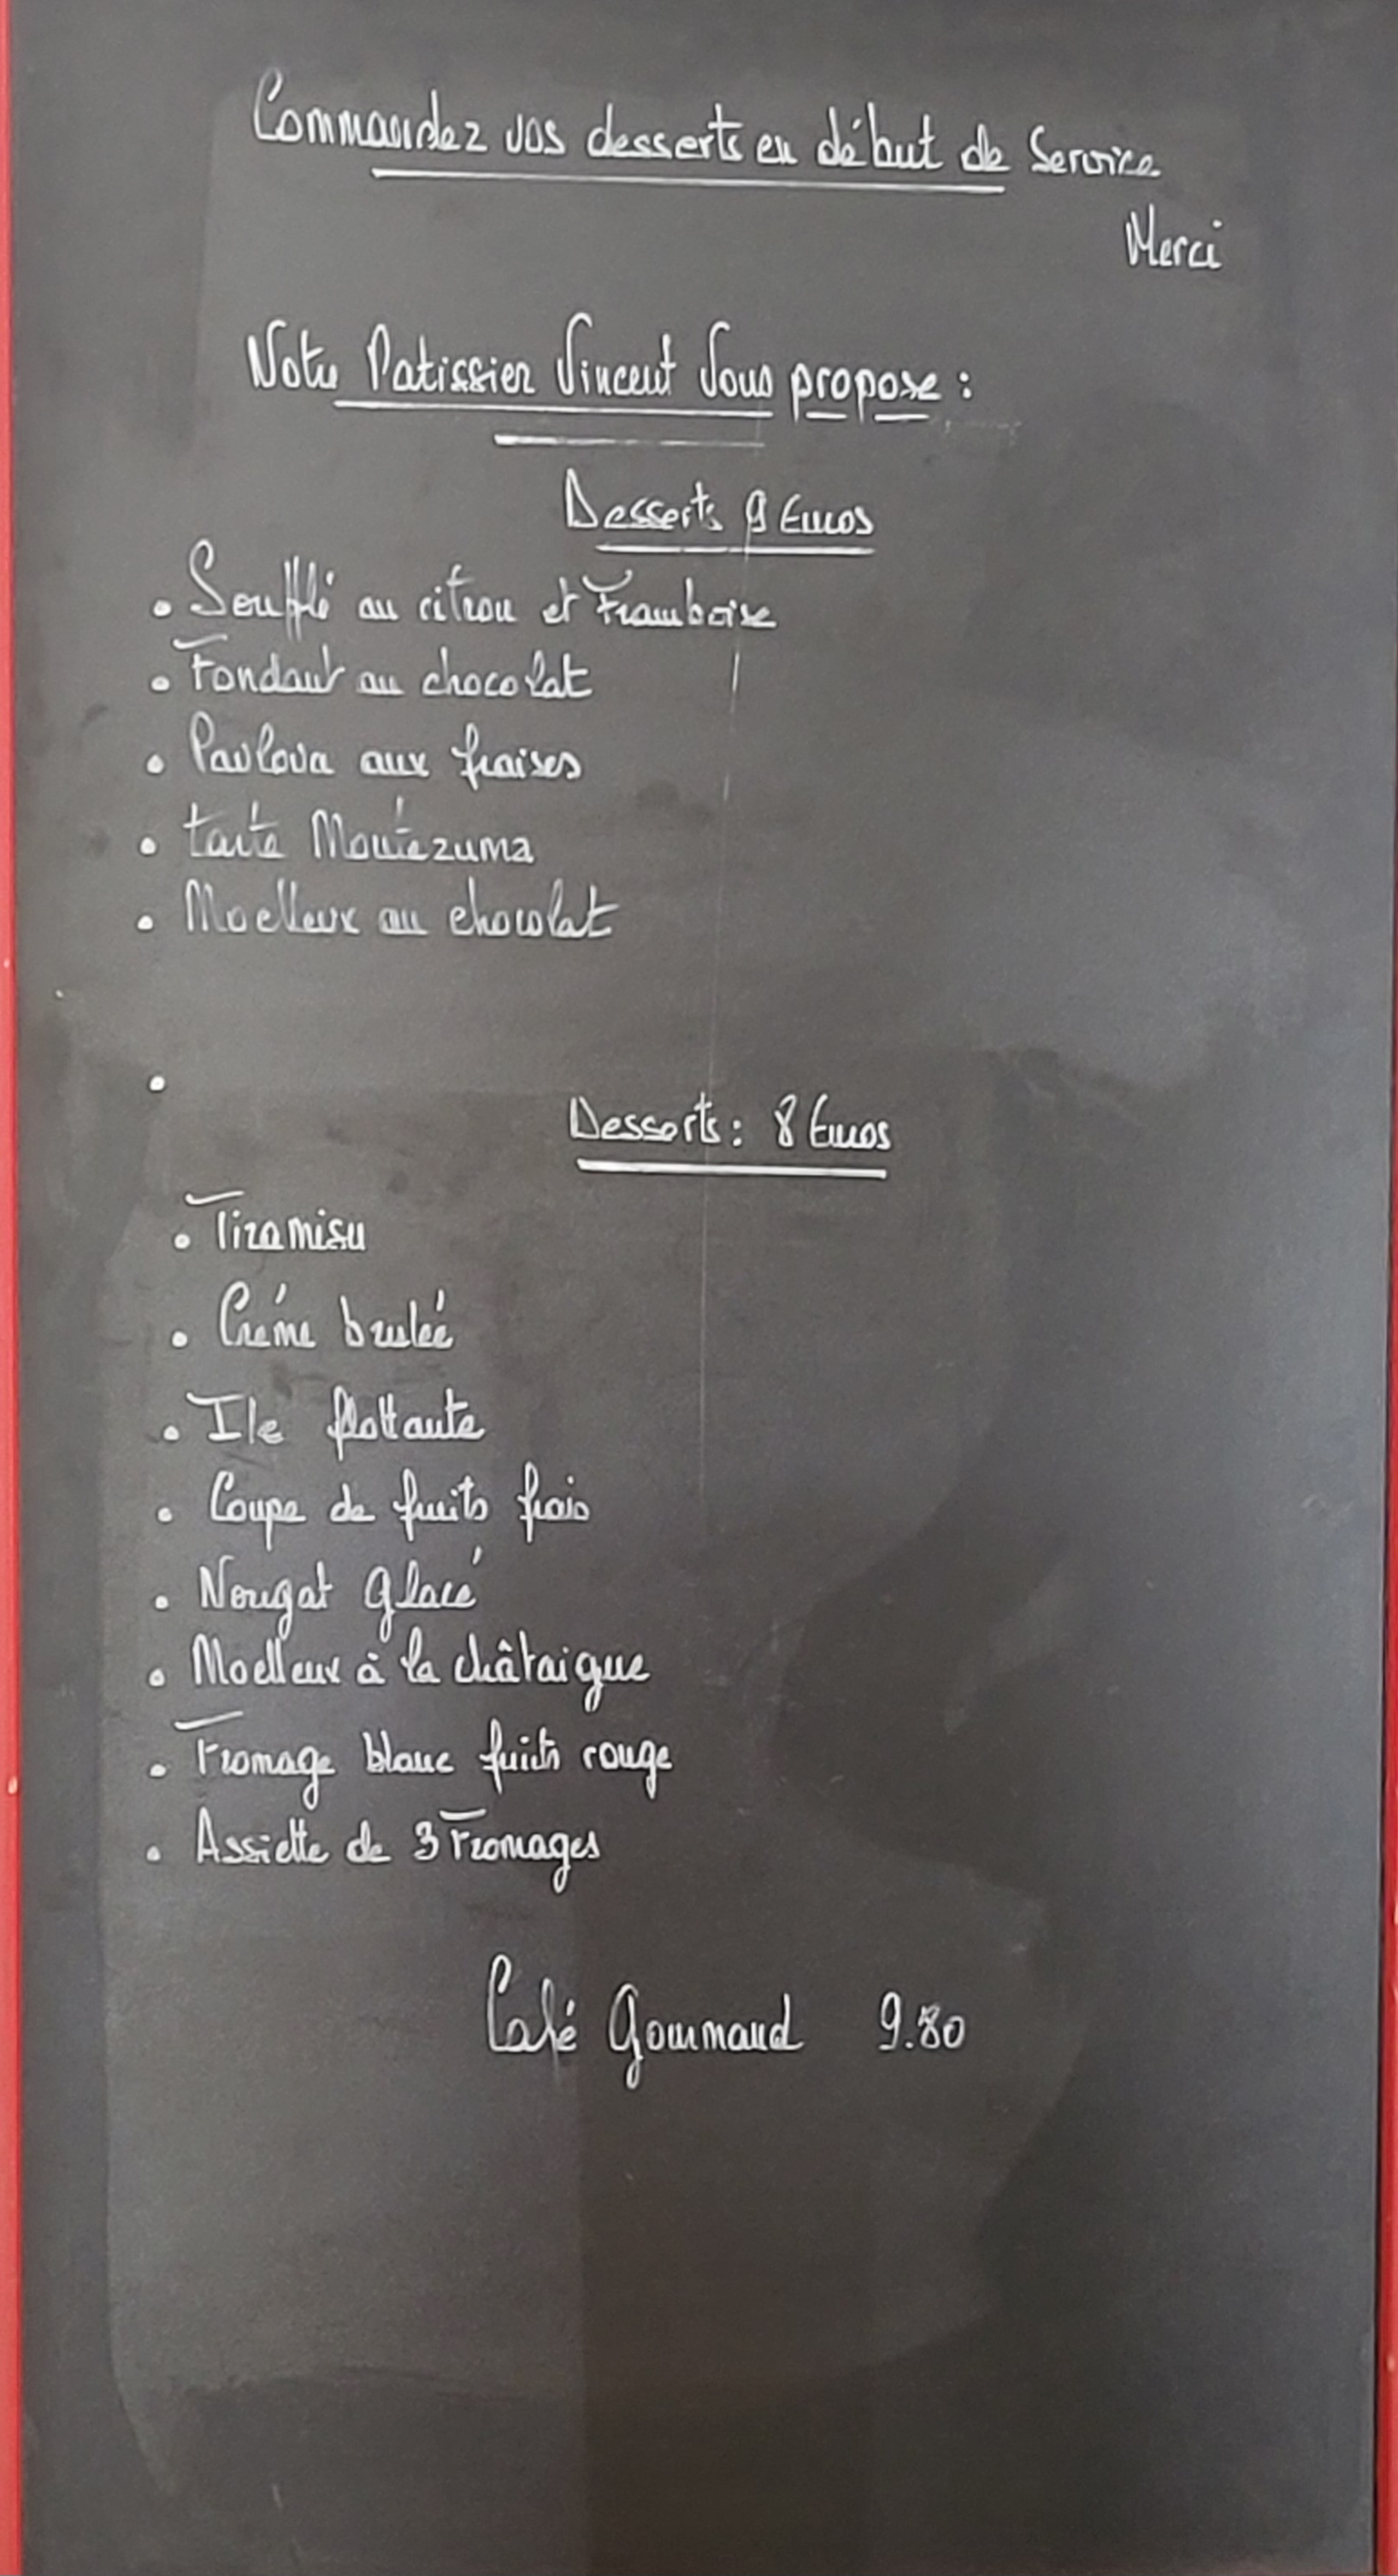 Commandez vos desserts en début de Service
Merci
Notre Patissier Vincent Vous propose :
Desserts 9 Euros
• Soufflé au citron et Framboise
• Fondant au chocolat
• Pavlova aux fraises
• tarte Montézuma
• Moelleux au chocolat
•
Desserts : 8 Euros
• Tiramisu
• Créme brulée
• Ile flottante
• Coupe de fruits frais
• Nougat Glacé
• Moelleux à la châtaigne
• Fromage blanc fruits rouge
• Assiette de 3 Fromages
Café Gourmand 9.80